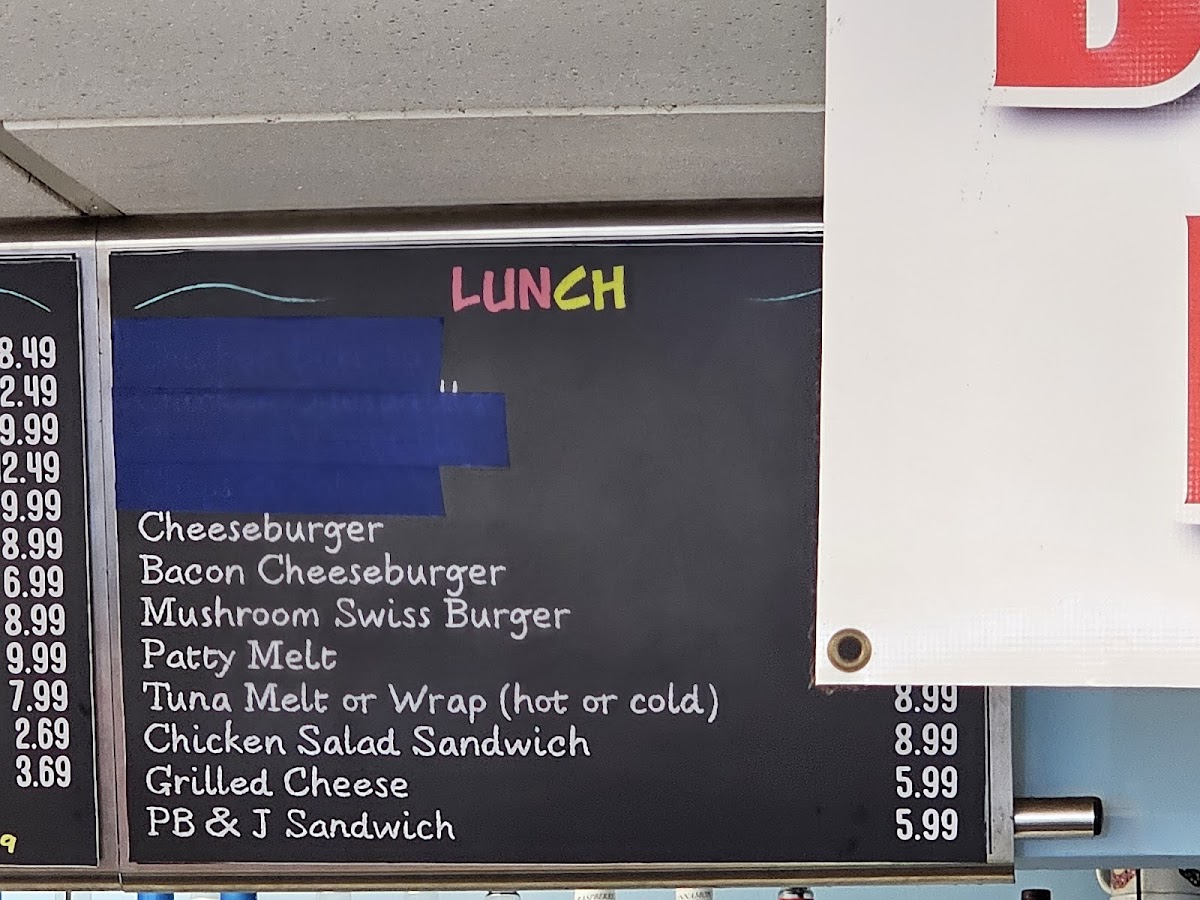 LUNCH
Cheeseburger
Bacon Cheeseburger
Mushroom Swiss Burger
Patty Melt
Tuna Melt or Wrap (hot or cold) 8.99
Chicken Salad Sandwich 8.99
Grilled Cheese 5.99
PB & J Sandwich 5.99
8.49
2.49
9.99
12.49
9.99
8.99
6.99
8.99
9.99
7.99
2.69
3.69
9